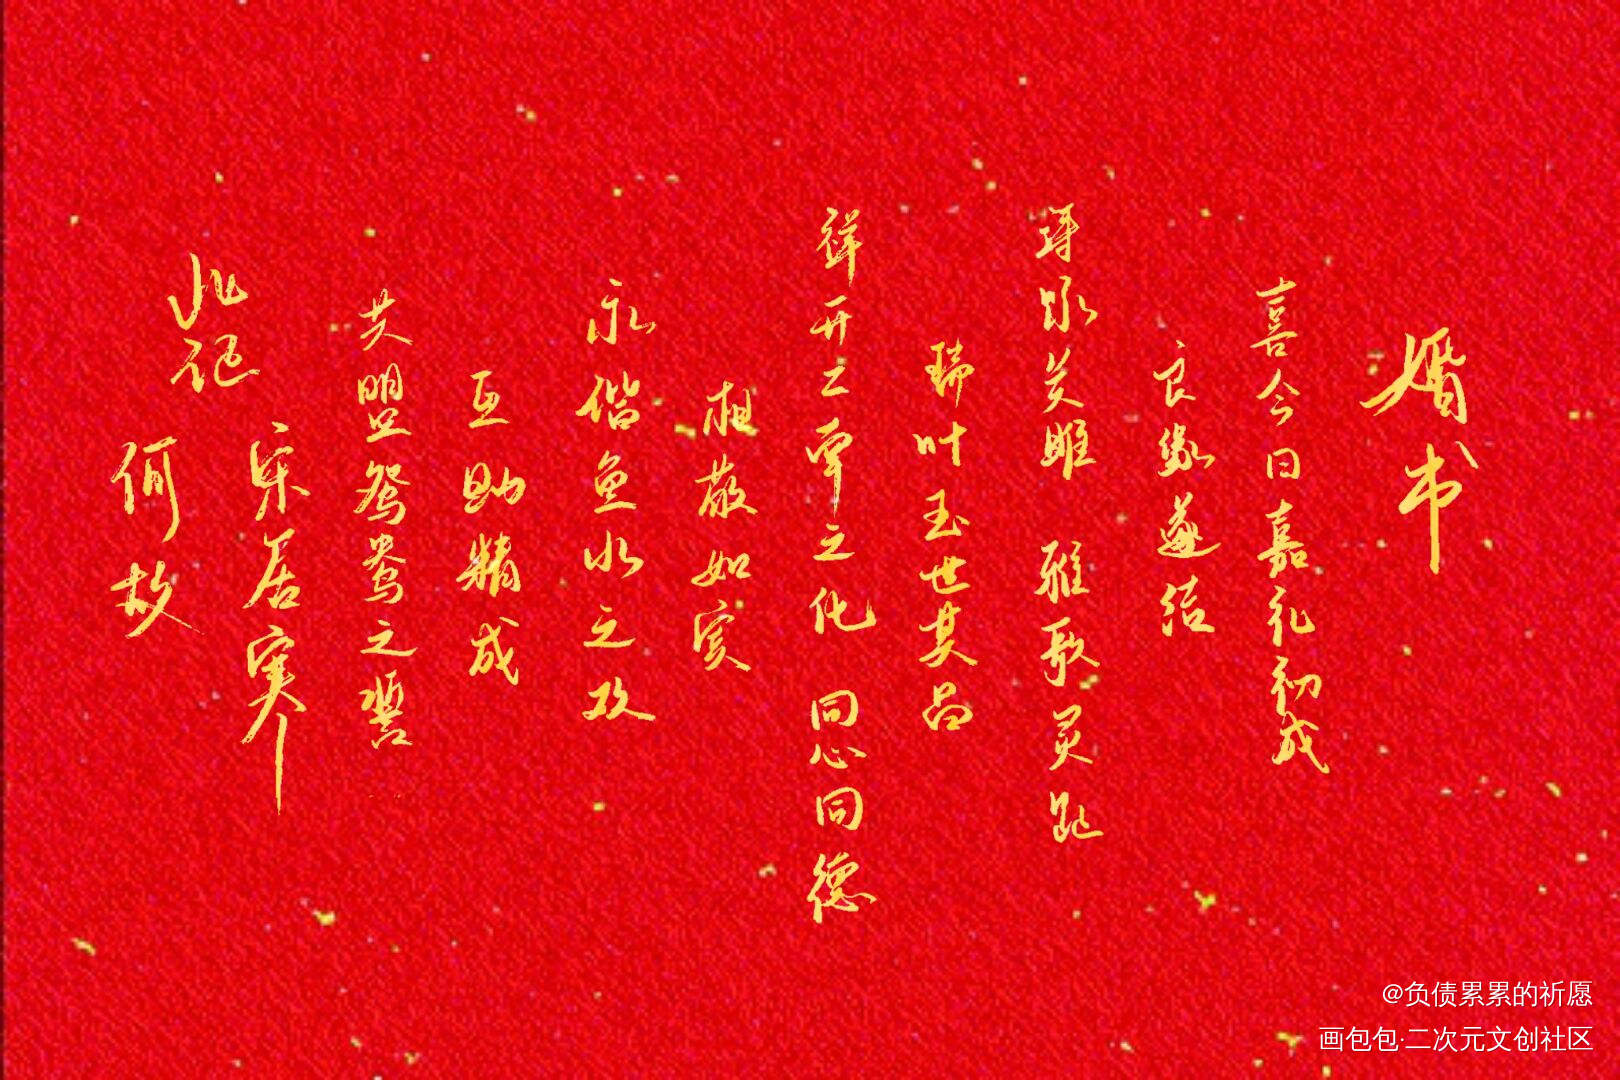 婚书
喜今日嘉礼初成
良缘遂结
诗咏关雎 雅歌灵趾
瑞叶五世其昌
祥开二覃之化 同心同德
相敬如宾
永偕鱼水之欢
互助精成
共盟鸳鸯之誓
此记
宋居寒
何故
@负债累累的祈愿
画包包·二次元文创社区